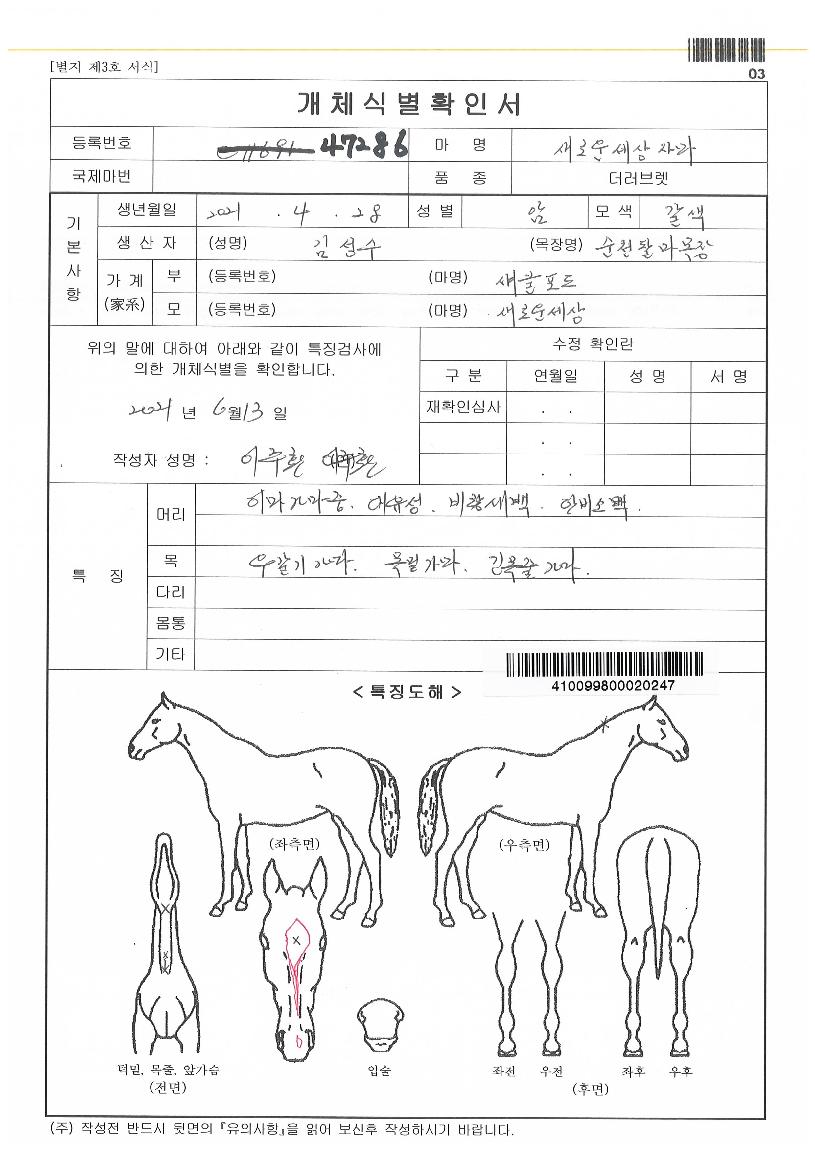 [별지 제3호 서식]
03
개체식별확인서
등록번호 47286 마 명 새로운세상자라
국제마번 품 종 더러브렛
기본사항
생년월일 2021 . 4 . 28 성 별 암 모 색 갈색
생 산 자 (성명) 김선수 (목장명) 순천팔마목장
가 계 (家系)
부 (등록번호) (마명) 섀클포드
모 (등록번호) (마명) 새로운세상
위의 말에 대하여 아래와 같이 특징검사에
의한 개체식별을 확인합니다.
2021 년 6월 13 일
작성자 성명 : 이주환
수정 확인란
구 분 연월일 성 명 서 명
재확인심사 . .
. .
. .
특 징
머리 이마가마중. 대유성. 비량세백. 안비소백.
목 우갈기가마. 목밑가마. 가마.
다리
몸통
기타
410099800020247
< 특징도해 >
(좌측면) (우측면)
턱밑, 목줄, 앞가슴
(전면)
입술
좌전 우전 좌후 우후
(후면)
(주) 작성전 반드시 뒷면의 『유의사항』을 읽어 보신후 작성하시기 바랍니다.